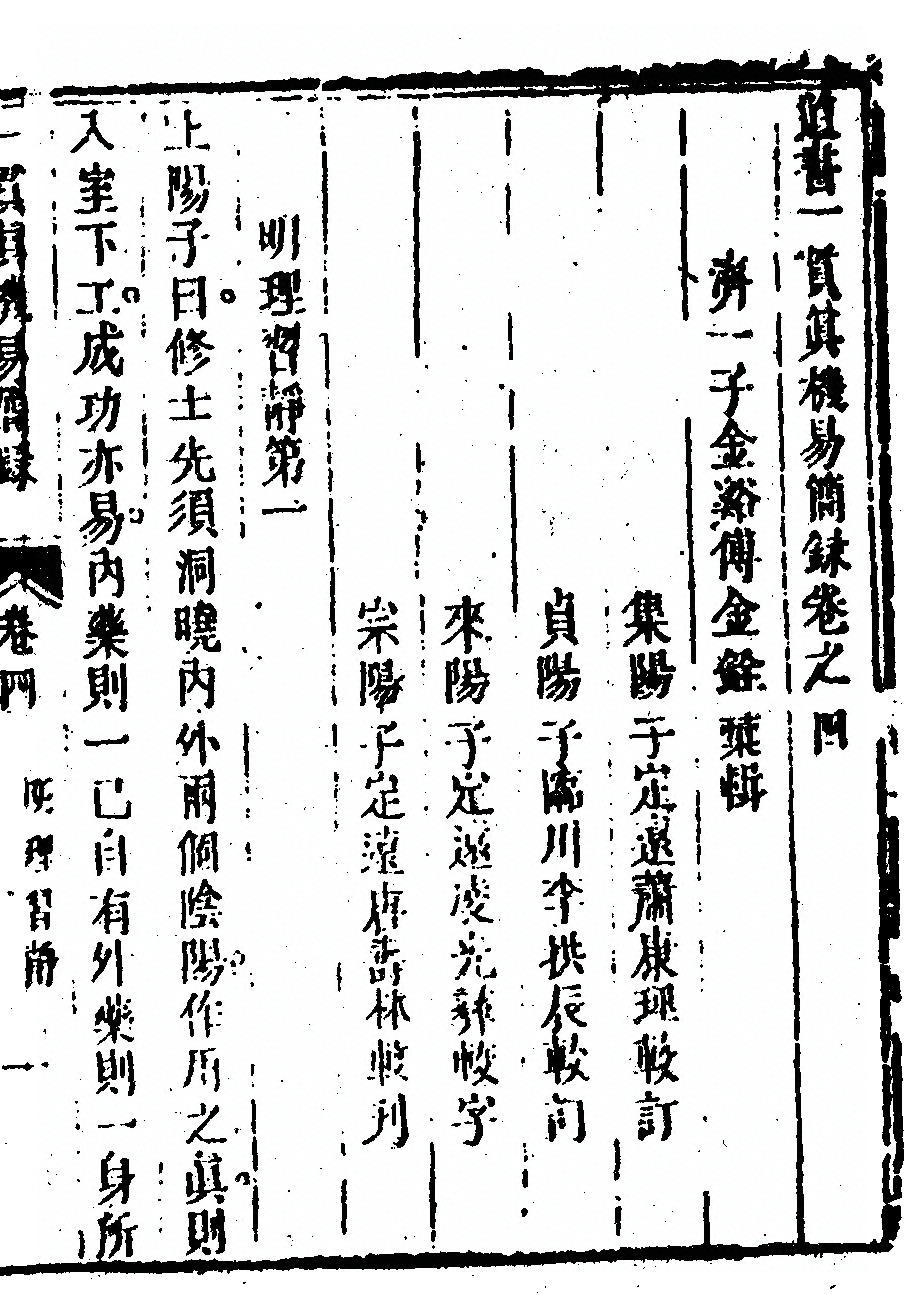 道書一貫眞機易簡錄卷之四
濟一子金谿傅金銓彙輯
集陽子定遠蕭康理較訂
貞陽子 川李拱辰較句
來陽子定遠凌允彝較字
崇陽子定遠 壽林較刊
明理習靜第一
上陽子曰。修士先須洞曉內外兩個陰陽。作用之眞。則
入室下工。成功亦易。內藥則一己自有外藥則一身所
一貫眞機易簡錄 卷四 明理習靜 一